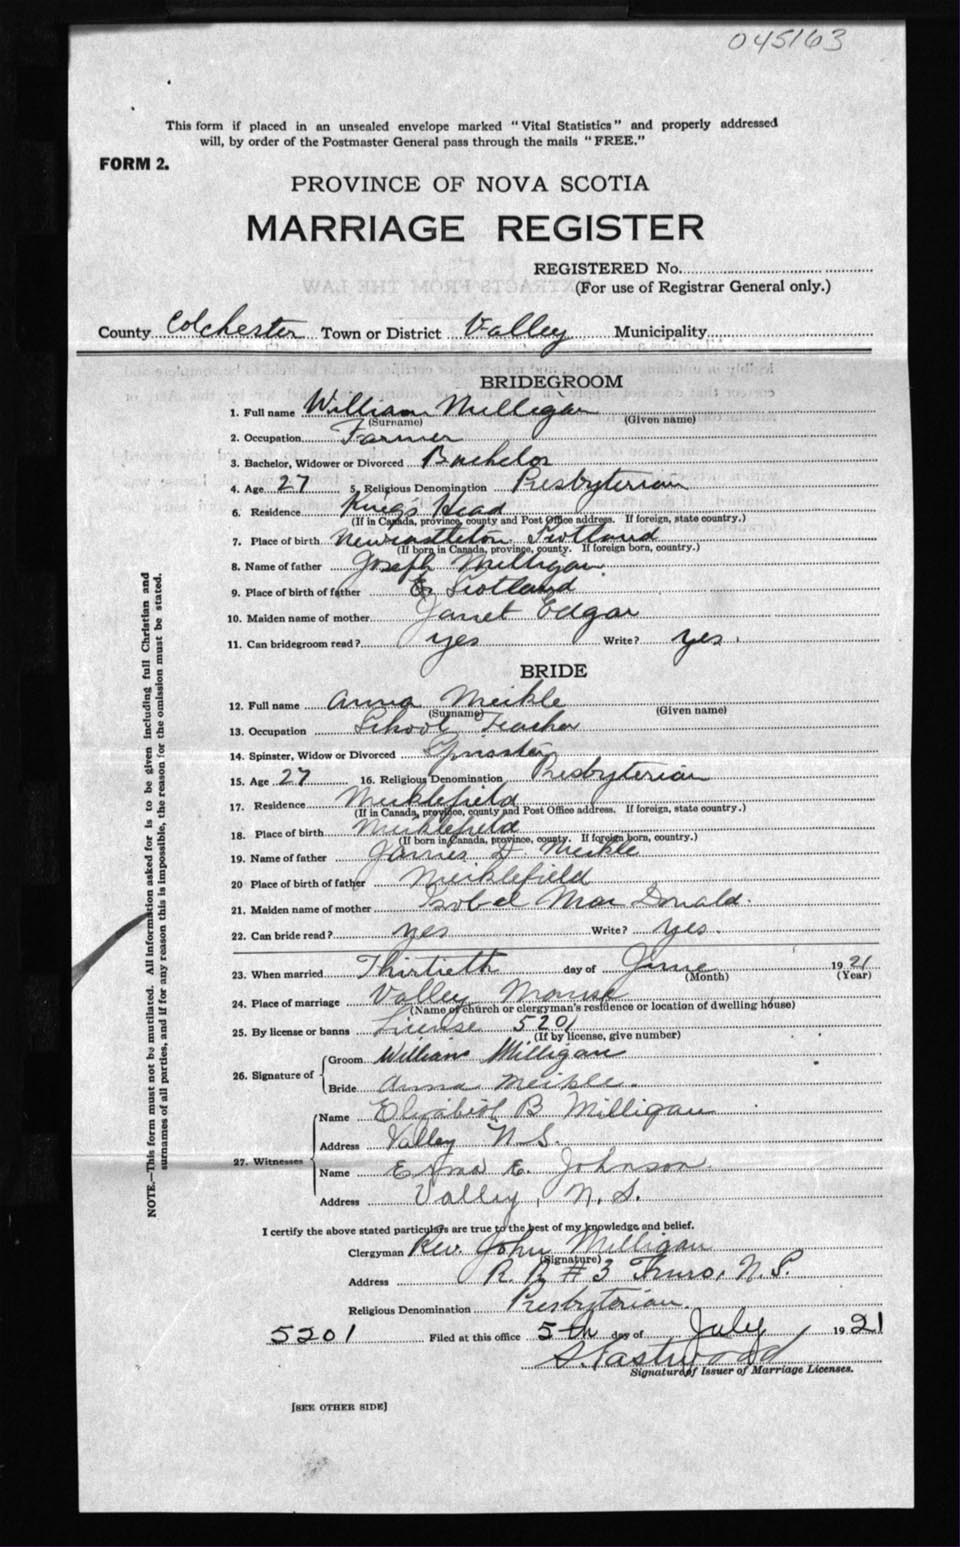 045163
This form if placed in an unsealed envelope marked "Vital Statistics" and properly addressed
will, by order of the Postmaster General pass through the mails "FREE."
FORM 2.
PROVINCE OF NOVA SCOTIA
MARRIAGE REGISTER
REGISTERED No.
(For use of Registrar General only.)
County Colchester Town or District Valley Municipality
BRIDEGROOM
1. Full name William Milligan
(Surname) (Given name)
2. Occupation Farmer
3. Bachelor, Widower or Divorced Bachelor
4. Age 27 5. Religious Denomination Presbyterian
6. Residence King's Head
(If in Canada, province, county and Post Office address. If foreign, state country.)
7. Place of birth Newcastleton Scotland
(If born in Canada, province, county. If foreign born, country.)
8. Name of father Joseph Milligan
9. Place of birth of father Scotland
10. Maiden name of mother Janet Edgar
11. Can bridegroom read? yes Write? yes.
BRIDE
12. Full name Anna Meikle
(Surname) (Given name)
13. Occupation School Teacher
14. Spinster, Widow or Divorced Spinster
15. Age 27 16. Religious Denomination Presbyterian
17. Residence Meiklefield
(If in Canada, province, county and Post Office address. If foreign, state country.)
18. Place of birth Meiklefield
(If born in Canada, province, county. If foreign born, country.)
19. Name of father James D. Meikle
20 Place of birth of father Meiklefield
21. Maiden name of mother Isobel Mac Donald.
22. Can bride read? yes Write? yes.
23. When married Thirtieth day of June 1921
(Month) (Year)
24. Place of marriage Valley Manse
(Name of church or clergyman's residence or location of dwelling house)
25. By license or banns License 5201
(If by license, give number)
26. Signature of Groom William Milligan
Bride Anna Meikle.
27. Witnesses Name B Milligan
Address Valley N S.
Name E. Johnson.
Address Valley, N. S.
I certify the above stated particulars are true to the best of my knowledge and belief.
Clergyman Rev. John Milligan
(Signature)
Address R. R # 3 Truro, N. S.
Religious Denomination Presbyterian.
5201 Filed at this office 5th day of July 1921
S. Eastwood
Signature of Issuer of Marriage Licenses.
[SEE OTHER SIDE]
NOTE.—This form must not be mutilated. All information asked for is to be given including full Christian and
surnames of all parties, and if for any reason this is impossible, the reason for the omission must be stated.